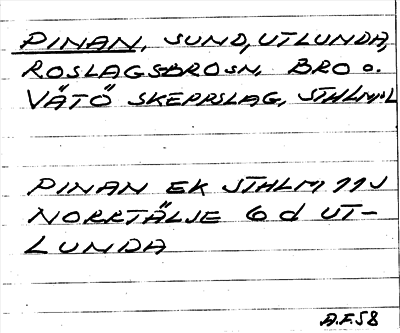 PINAN, SUND, UTLUNDA,
ROSLAGSBROSN. BRO O.
VÄTÖ SKEPPSLAG, STHLM:L
PINAN EK STHLM 11J
NORRTÄLJE 6 d UT-
LUNDA
A.F.58